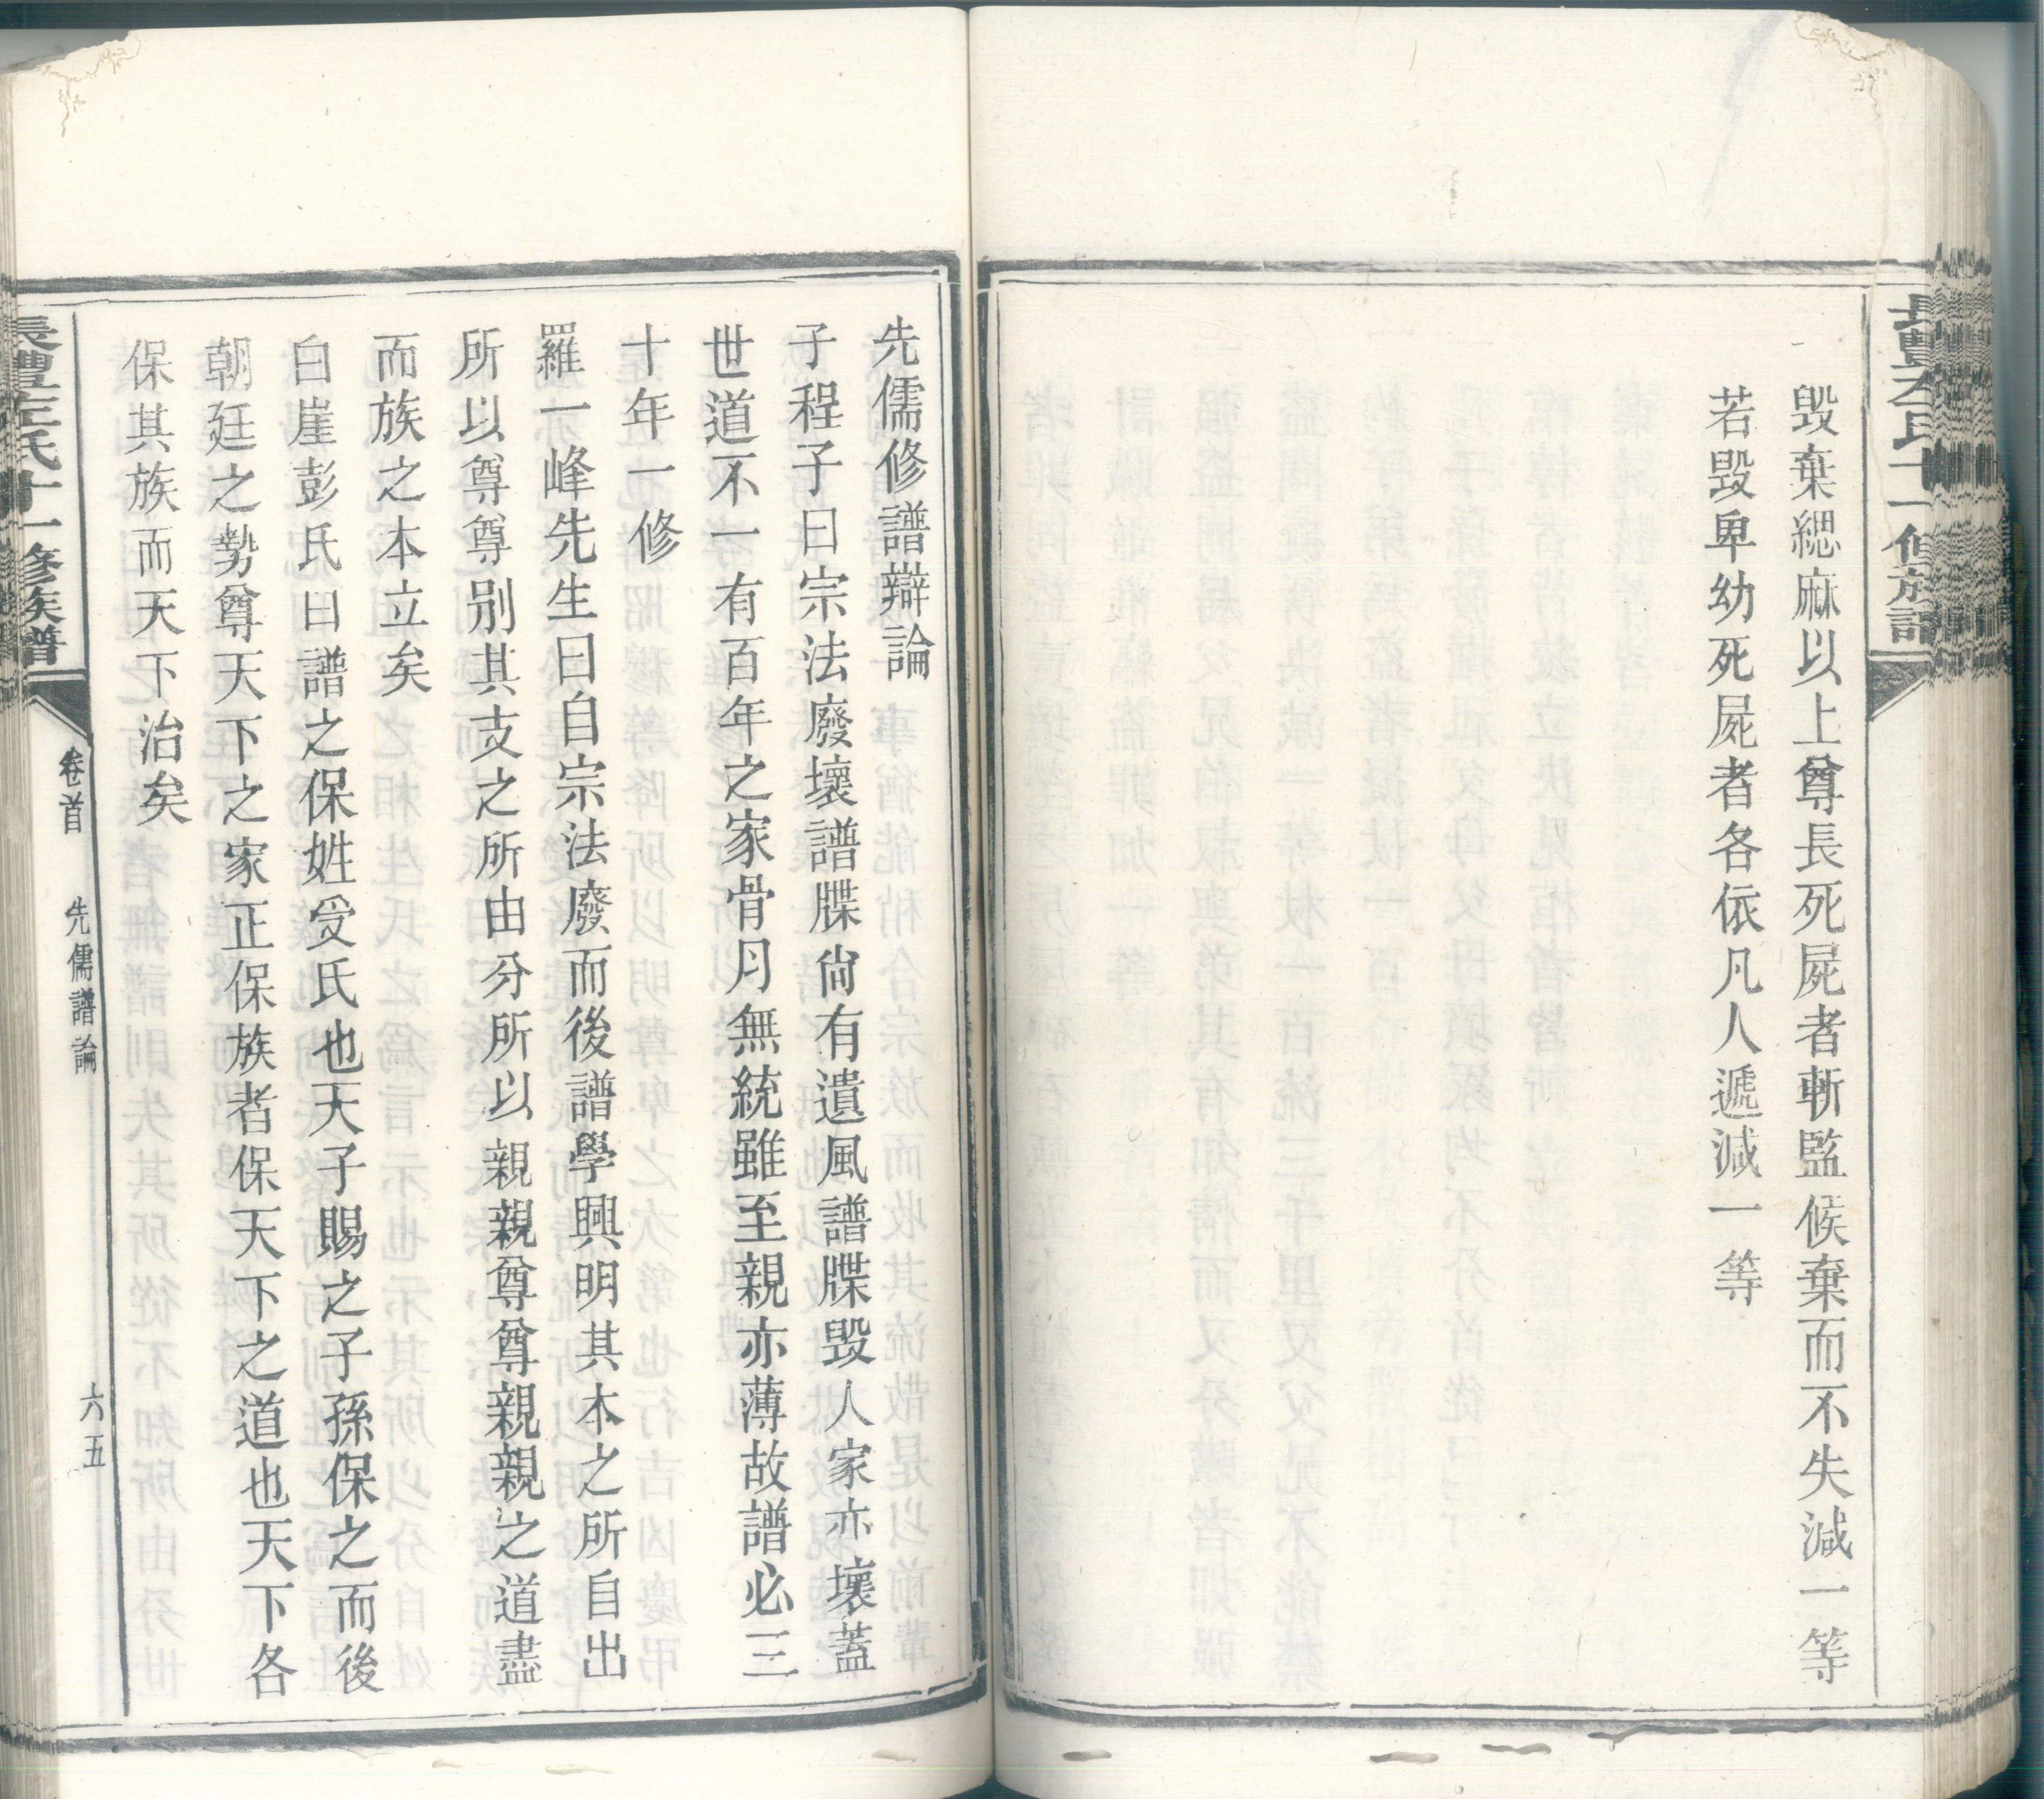 毀棄緦麻以上尊長死屍者斬監候棄而不失減一等
若毀卑幼死屍者各依凡人遞減一等
先儒修譜辯論
子程子曰宗法廢壞譜牒尙有遺風譜牒毀人家亦壞蓋
世道不一有百年之家骨月無統雖至親亦薄故譜必三
十年一修
羅一峰先生曰自宗法廢而後譜學興明其本之所自出
所以尊尊別其支之所由分所以親親尊尊親親之道盡
而族之本立矣
白崖彭氏曰譜之保姓受氏也天子賜之子孫保之而後
朝廷之勢尊天下之家正保族者保天下之道也天下各
保其族而天下治矣
長豐左氏十一修族譜
卷首 先儒譜論 六五